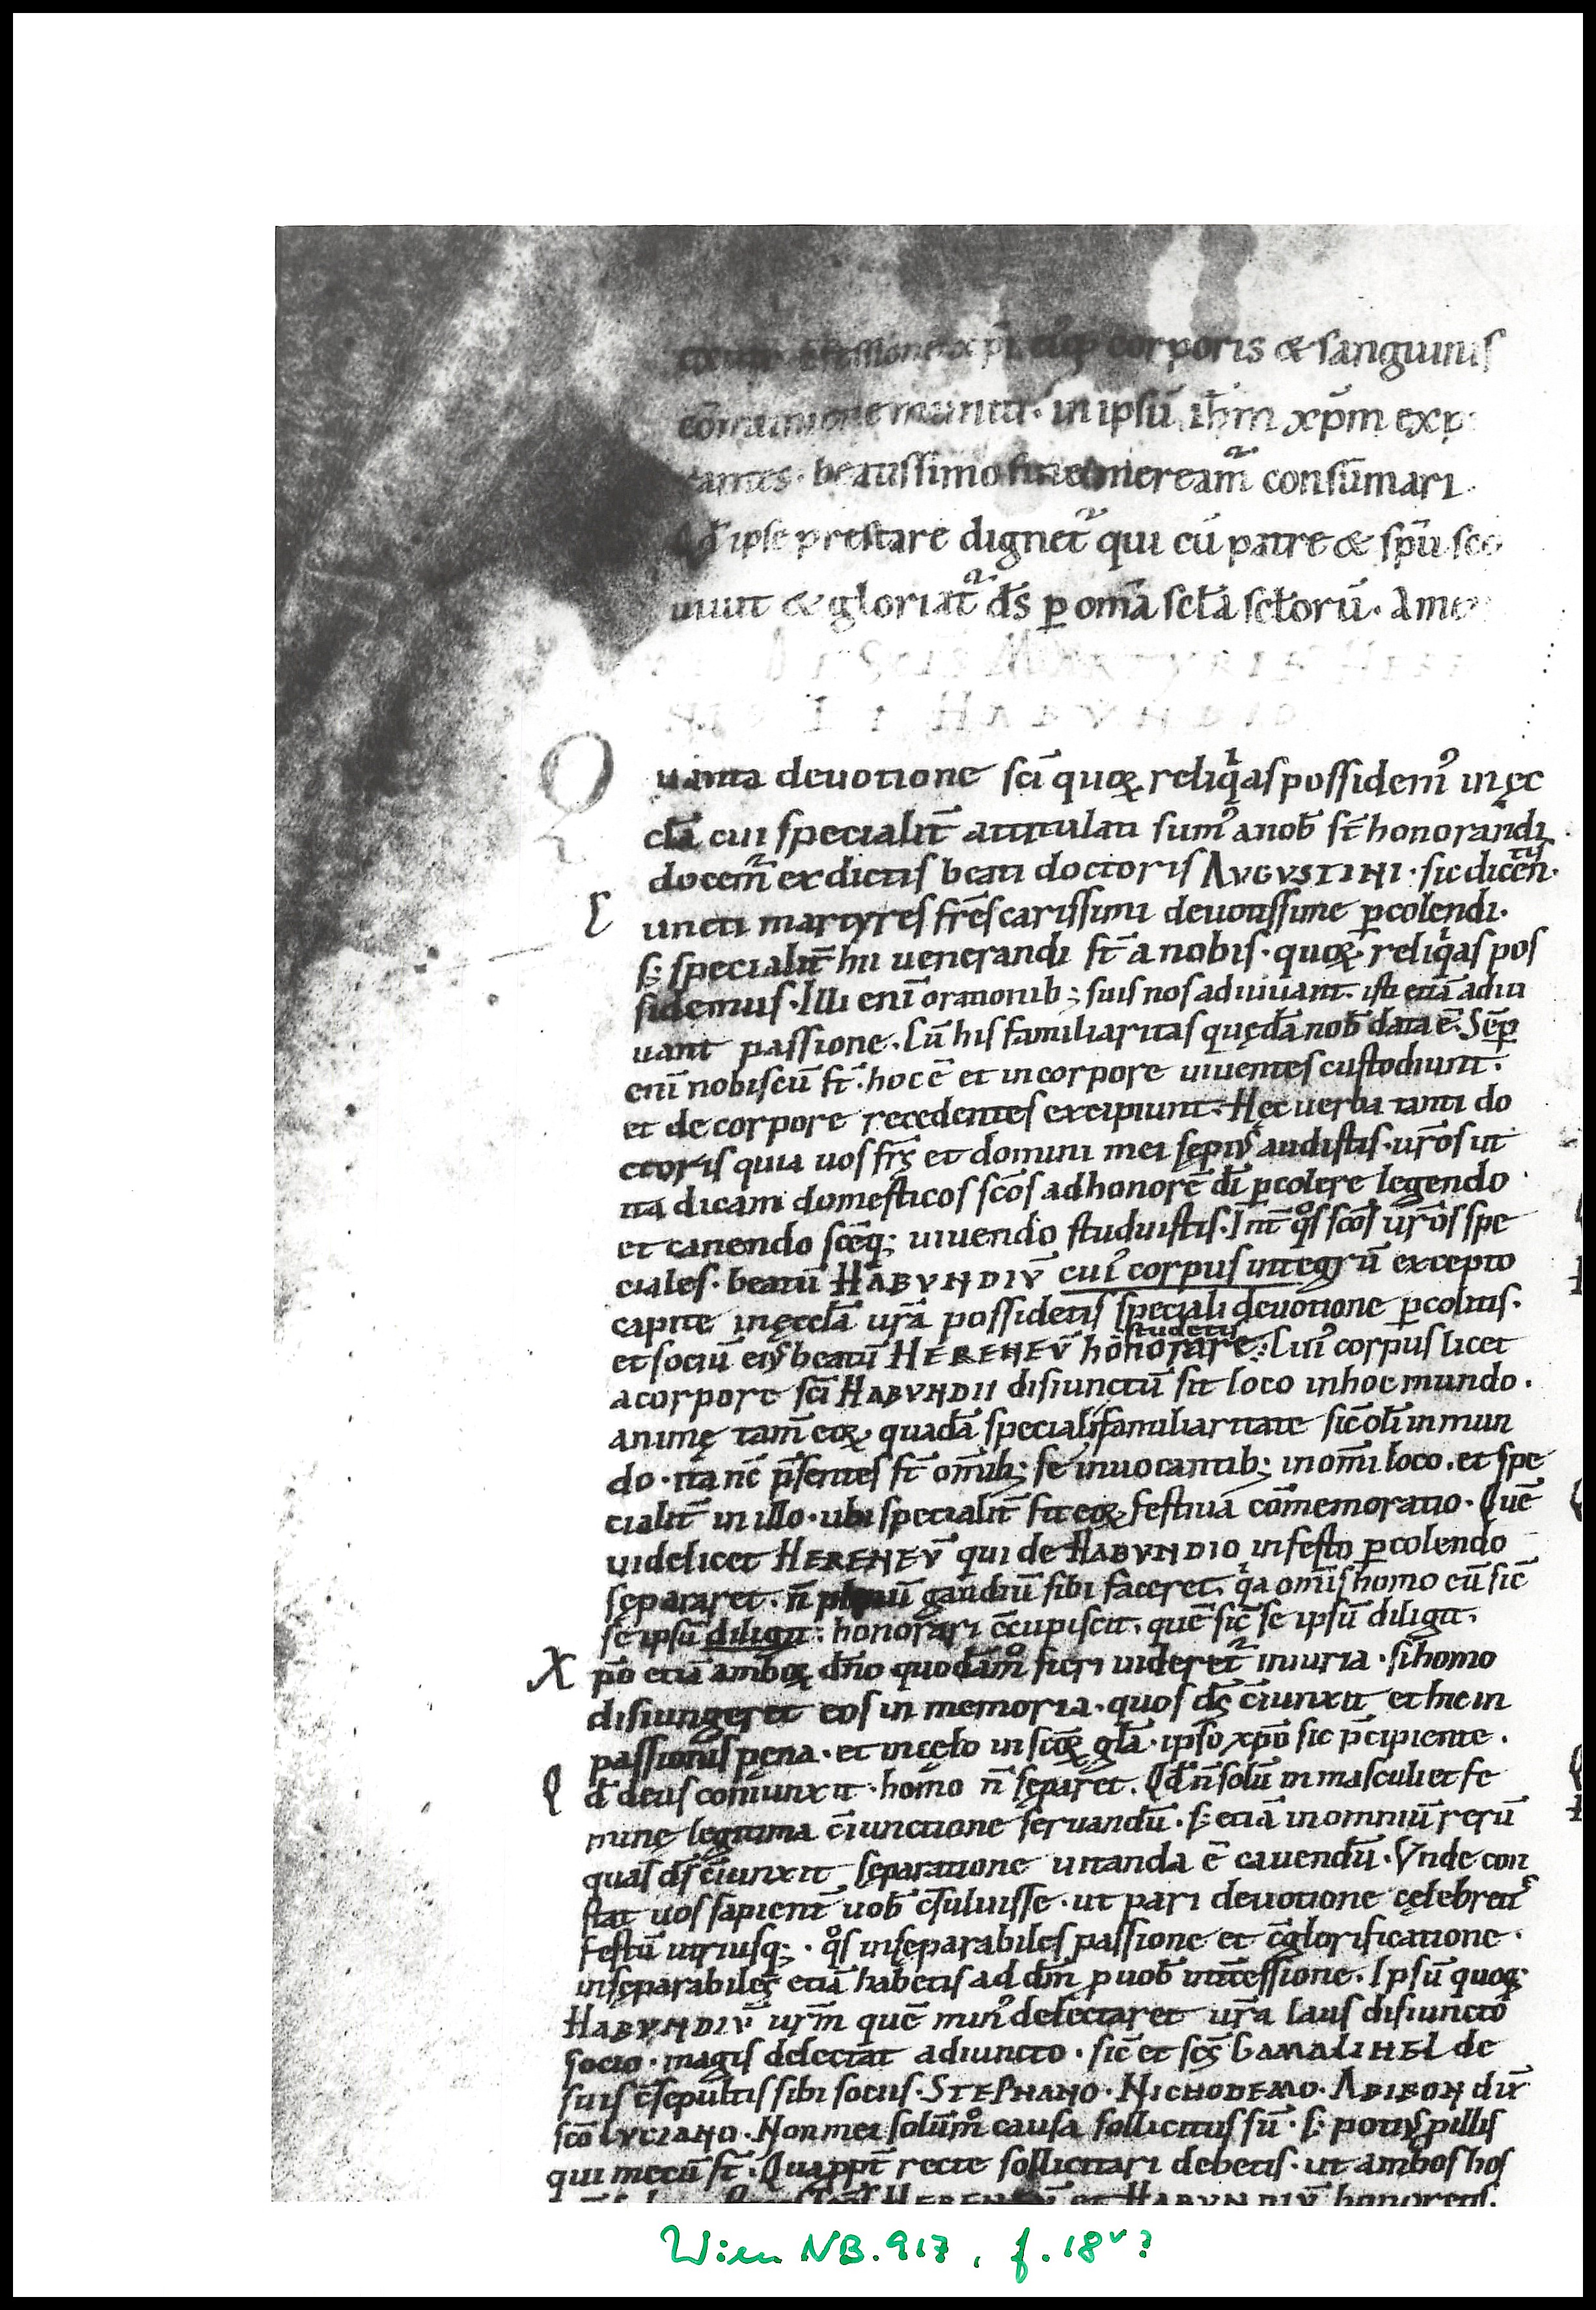 corporis & sanguinis
in ipsū ih̄m xp̄m
beatissimo fine meream̄ consūmari.
Qd̄ ipse prestare dignet̄ qui cū patre & sp̄u sco
uiuit & gloriat̄ d̄s ꝑ om̄a scła scłorū. Ame
Quanta deuotione sc̄i quoꝝ reliqͥas possidemꝰ in ęc
cła cui specialit̄ attitulati sumꝰ a nob̄ st̄ honorandi
docem̄ ex dictis beati doctoris AVGVSTINI · sic dicentis ·
Cuncti martyres fr̄es carissimi deuotissime ꝑcolendi.
s; specialit̄ hii uenerandi st̄ a nobis · quoꝝ reliqͥas pos
sidemus · Illi eni orationib; suis nos adiuuant. isti etiā adiu
uant passione. Cū his familiaritas quędā nob̄ data ē. Sēꝑ
eni nobiscū st̄ · hoc ē et in corpore uiuentes custodiunt.
et de corpore recedentes excipiunt. Hęc uerba tanti do
ctoris quia uos fr̄s et domini mei sępiꝰ audistis · ur̄os ut
ita dicam domesticos sc̄os ad honorē dī ꝑcolere legendo
et canendo sc̄eq; uiuendo studuistis. Int̄ qͦs sc̄os ur̄os spe
ciales · beatū HABVNDIV̄ cuiꝰ corpus integrū excepto
capite in ęccłā ur̄a possidetis speciali deuotione ꝑcolitis.
et sociū eiꝰ beatū HERENEV̄ honorare studetis. Cuiꝰ corpus licet
a corpore sc̄i HABVNDII disiunctū sit loco in hoc mundo.
animę tam̄ eoꝝ quadā speciali familiaritate sic̄ oli in mun
do · ita nc̄ p̄sentes st̄ omib; se inuocantib; in omi loco. et spe
cialit̄ in illo · ubi specialit̄ fit eoꝝ festiua cōmemoratio · Quē
uidelicet HERENEV̄ qui de HABVNDIO in festo ꝑcolendo
sępararet. n̄ plenū gaudiū sibi faceret. qͥa omis homo eū sic̄
se ipsū diligit : honorari c̄cupiscit. quē sic̄ se ipsū diligit.
Xpō etiā amboꝝ dn̄o quodāmͦ fieri uideret̄ iniuria · si homo
disiungeret eos in memoria · quos d̄s c̄iunxit et hic in
passionis pęna · et in cęlo in sc̄oꝝ głā · ipso xpō sic p̄cipiente.
Qd̄ deus coniunxit · homo n̄ sęparet. Qd̄ n̄ solū in masculi et fe
minę legitima c̄iunctione seruandū · s; etiā in omniū rerū
quas d̄s c̄iunxit sęparatione uitanda ē cauendū. Vnde con
stat uos sapient̄ uob̄ c̄suluisse · ut pari deuotione cęlebretis
festū utriusq; · qͦs insęparabiles passione et c̄glorificatione ·
insęparabiles etiā habetis ad dm̄ p uob̄ int̄cessione. Ipsū quoq;
HABVNDIV̄ ur̄m quē minꝰ delectaret ur̄a laus disiuncto
socio · magis delectat adiuncto · sic̄ et sc̄s GAMALIHEL de
suis c̄sepultis sibi sociis · STEPHANO · NICHODEMO · ABIBON dix̄
sc̄o LVCIANO · Non mei solūmͦ causa sollicitus sū · s; potiꝰ p illis
qui mecū st̄ · Quapp̄t recte sollicitari debetis · ut ambos hos
HERENEV̄ et HABVNDIV̄ honoretis.
Wien NB. 917, f. 18ᵛ?